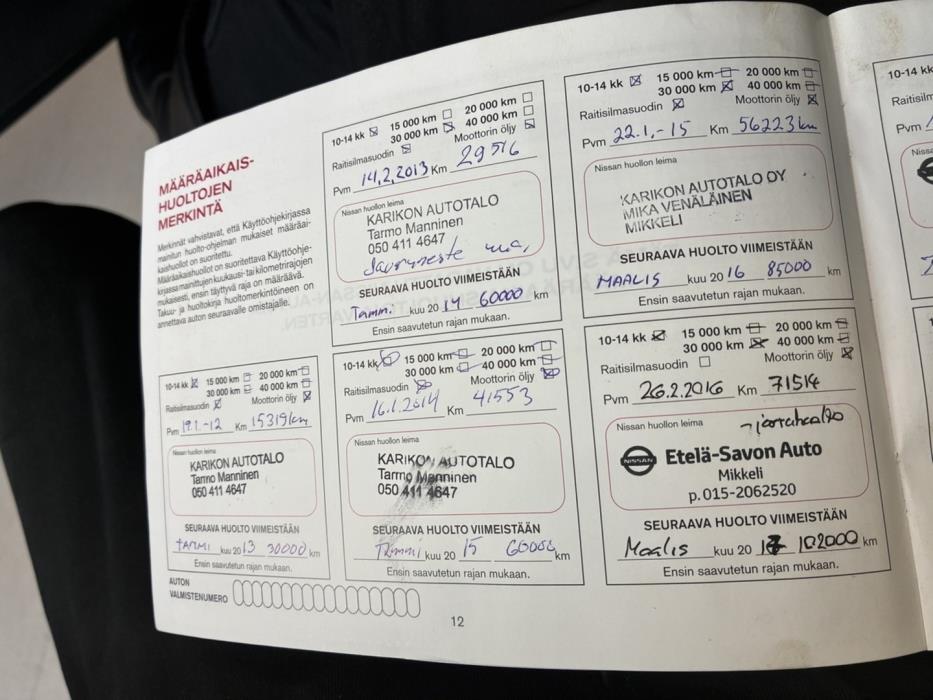 MÄÄRÄAIKAIS-
HUOLTOJEN
MERKINTÄ
Merkinnät vahvistavat, että Käyttöohjekirjassa
mainitun huolto-ohjelman mukaiset määräai-
kaishuollot on suoritettu.
Määräaikaishuollot on suoritettava Käyttöohje-
kirjassa mainittujen kuukausi- tai kilometrirajojen
mukaisesti, ensin täyttyvä raja on määräävä.
Takuu- ja huoltokirja huoltomerkintöineen on
annettava auton seuraavalle omistajalle.
10-14 kk 15 000 km 20 000 km
30 000 km 40 000 km
Raitisilmasuodin Moottorin öljy
Pvm 19.1.-12 Km 15319 km
Nissan huollon leima
KARIKON AUTOTALO
Tarmo Manninen
050 411 4647
SEURAAVA HUOLTO VIIMEISTÄÄN
TAMMI kuu 20 13 30000 km
Ensin saavutetun rajan mukaan.
AUTON
VALMISTENUMERO
10-14 kk 15 000 km 20 000 km
30 000 km 40 000 km
Raitisilmasuodin Moottorin öljy
Pvm 14.2.2013 Km 29516
Nissan huollon leima
KARIKON AUTOTALO
Tarmo Manninen
050 411 4647
SEURAAVA HUOLTO VIIMEISTÄÄN
Tammi. kuu 20 14 60000 km
Ensin saavutetun rajan mukaan.
10-14 kk 15 000 km 20 000 km
30 000 km 40 000 km
Raitisilmasuodin Moottorin öljy
Pvm 16.1.2014 Km 41553
Nissan huollon leima
KARIKON AUTOTALO
Tarmo Manninen
050 411 4647
SEURAAVA HUOLTO VIIMEISTÄÄN
Tammi kuu 20 15 60000 km
Ensin saavutetun rajan mukaan.
12
10-14 kk 15 000 km 20 000 km
30 000 km 40 000 km
Raitisilmasuodin Moottorin öljy
Pvm 22.1.-15 Km 56223 km
Nissan huollon leima
KARIKON AUTOTALO OY
MIKA VENÄLÄINEN
MIKKELI
SEURAAVA HUOLTO VIIMEISTÄÄN
MAALIS kuu 20 16 85000 km
Ensin saavutetun rajan mukaan.
10-14 kk 15 000 km 20 000 km
30 000 km 40 000 km
Raitisilmasuodin Moottorin öljy
Pvm 26.2.2016 Km 71514
Nissan huollon leima -jarruhuolto
NISSAN Etelä-Savon Auto
Mikkeli
p. 015-2062520
SEURAAVA HUOLTO VIIMEISTÄÄN
Maalis kuu 20 17 102000 km
Ensin saavutetun rajan mukaan.
10-14 kk
Pvm